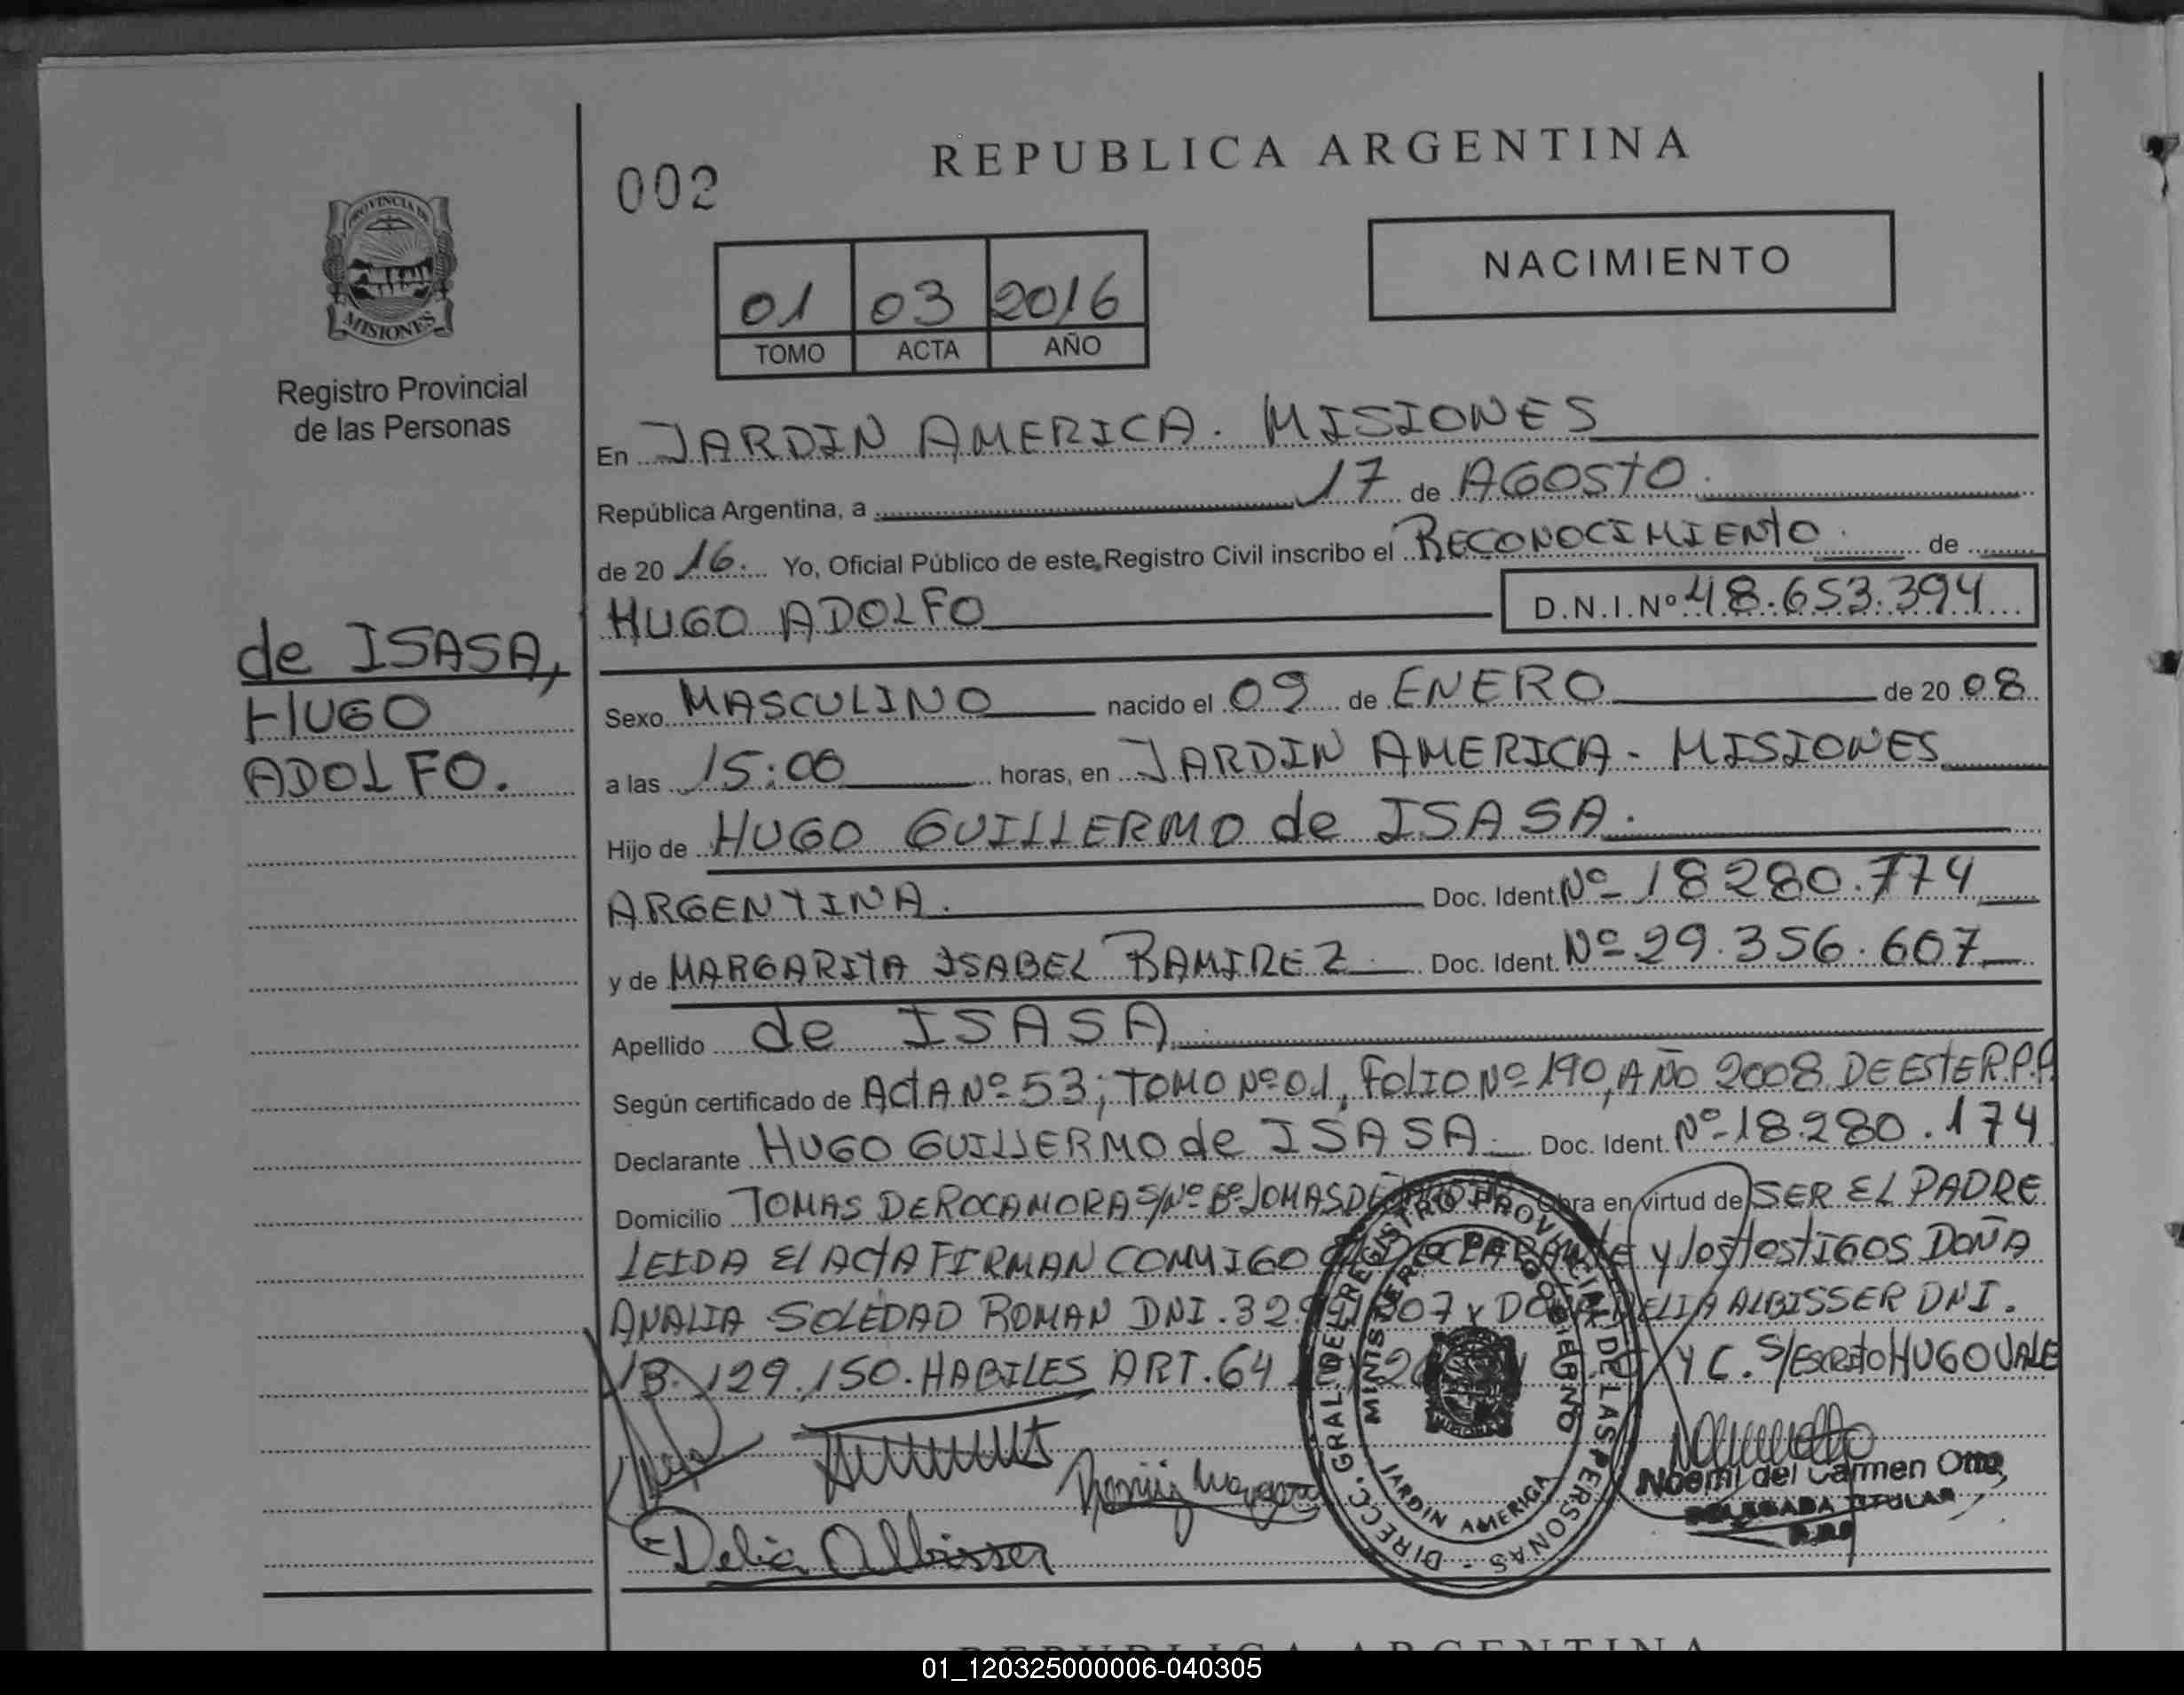 REPUBLICA ARGENTINA
002
PROVINCIA DE
MISIONES
Registro Provincial
de las Personas
NACIMIENTO
01 03 2016
TOMO ACTA AÑO
En JARDIN AMERICA. MISIONES
República Argentina, a 17 de AGOSTO.
de 20 16. Yo, Oficial Público de este Registro Civil inscribo el RECONOCIMIENTO. de
HUGO ADOLFO D.N.I.Nº 48.653.394
de ISASA,
HUGO
ADOLFO.
Sexo MASCULINO nacido el 09 de ENERO de 20 08
a las 15:00 horas, en JARDIN AMERICA - MISIONES
Hijo de HUGO GUILLERMO de ISASA.
ARGENTINA. Doc. Ident. Nº 18280.774
y de MARGARITA ISABEL RAMIREZ Doc. Ident. Nº 29.356.607
Apellido de ISASA
Según certificado de ACTA Nº 53; TOMO Nº 01, FOLIO Nº 190, AÑO 2008 DE ESTE R.P.P.
Declarante HUGO GUILLERMO de ISASA. Doc. Ident. Nº 18.280.174
Domicilio TOMAS DE ROCAMORA S/Nº Bº LOMAS DE Obra en virtud de SER EL PADRE
LEIDA El ACTA FIRMAN CONMIGO DECLARANTE y los testigos DOÑA
ANALIA SOLEDAD ROMAN DNI. 32. 307 Y DOÑA DELIA ALBISSER DNI.
13.129.150. HABILES ART. 64 Y C. S/ESCRITO HUGO VALE
Delia Albisser
DIRECC. GRAL. DEL REGISTRO PROVINCIAL DE LAS PERSONAS -
MINISTERIO DE GOBIERNO
JARDIN AMERICA
Noemi del Carmen Otto
DELEGADA TITULAR
REPUBLICA ARGENTINA
01_120325000006-040305